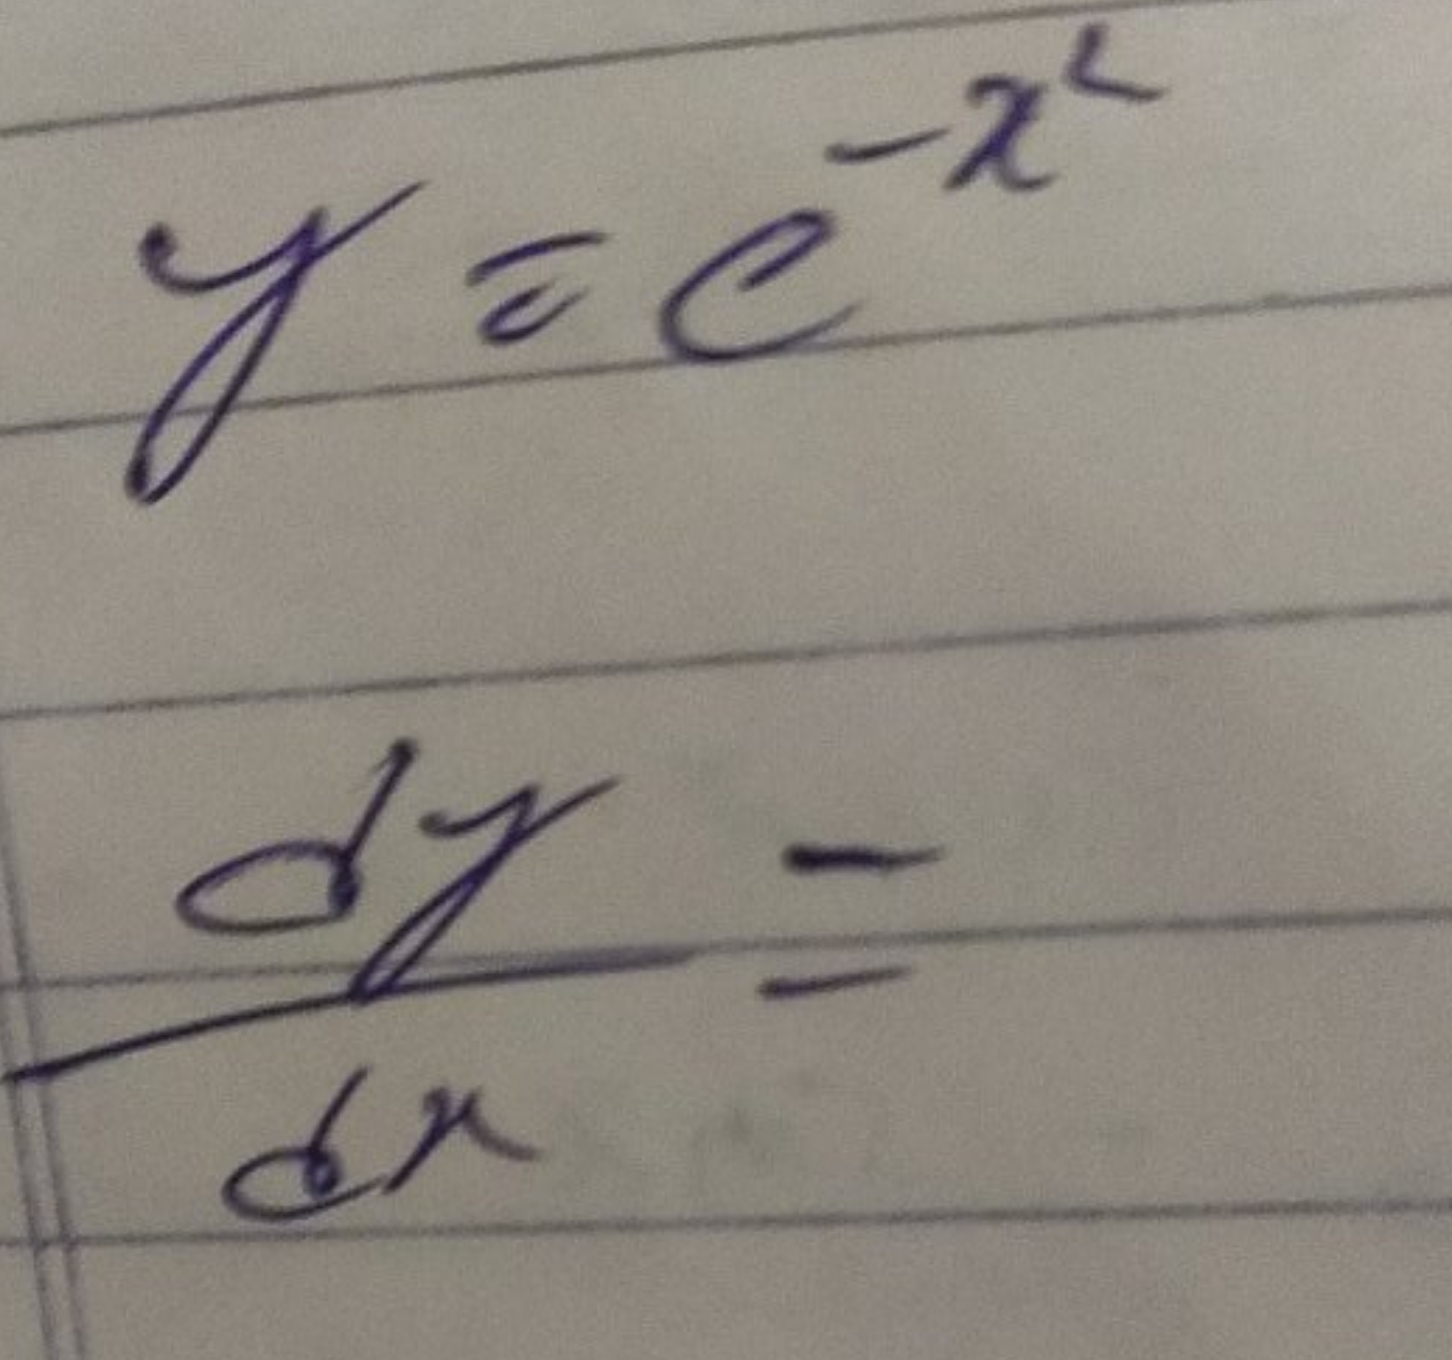 y = e^{-x^2}
dy/dx =